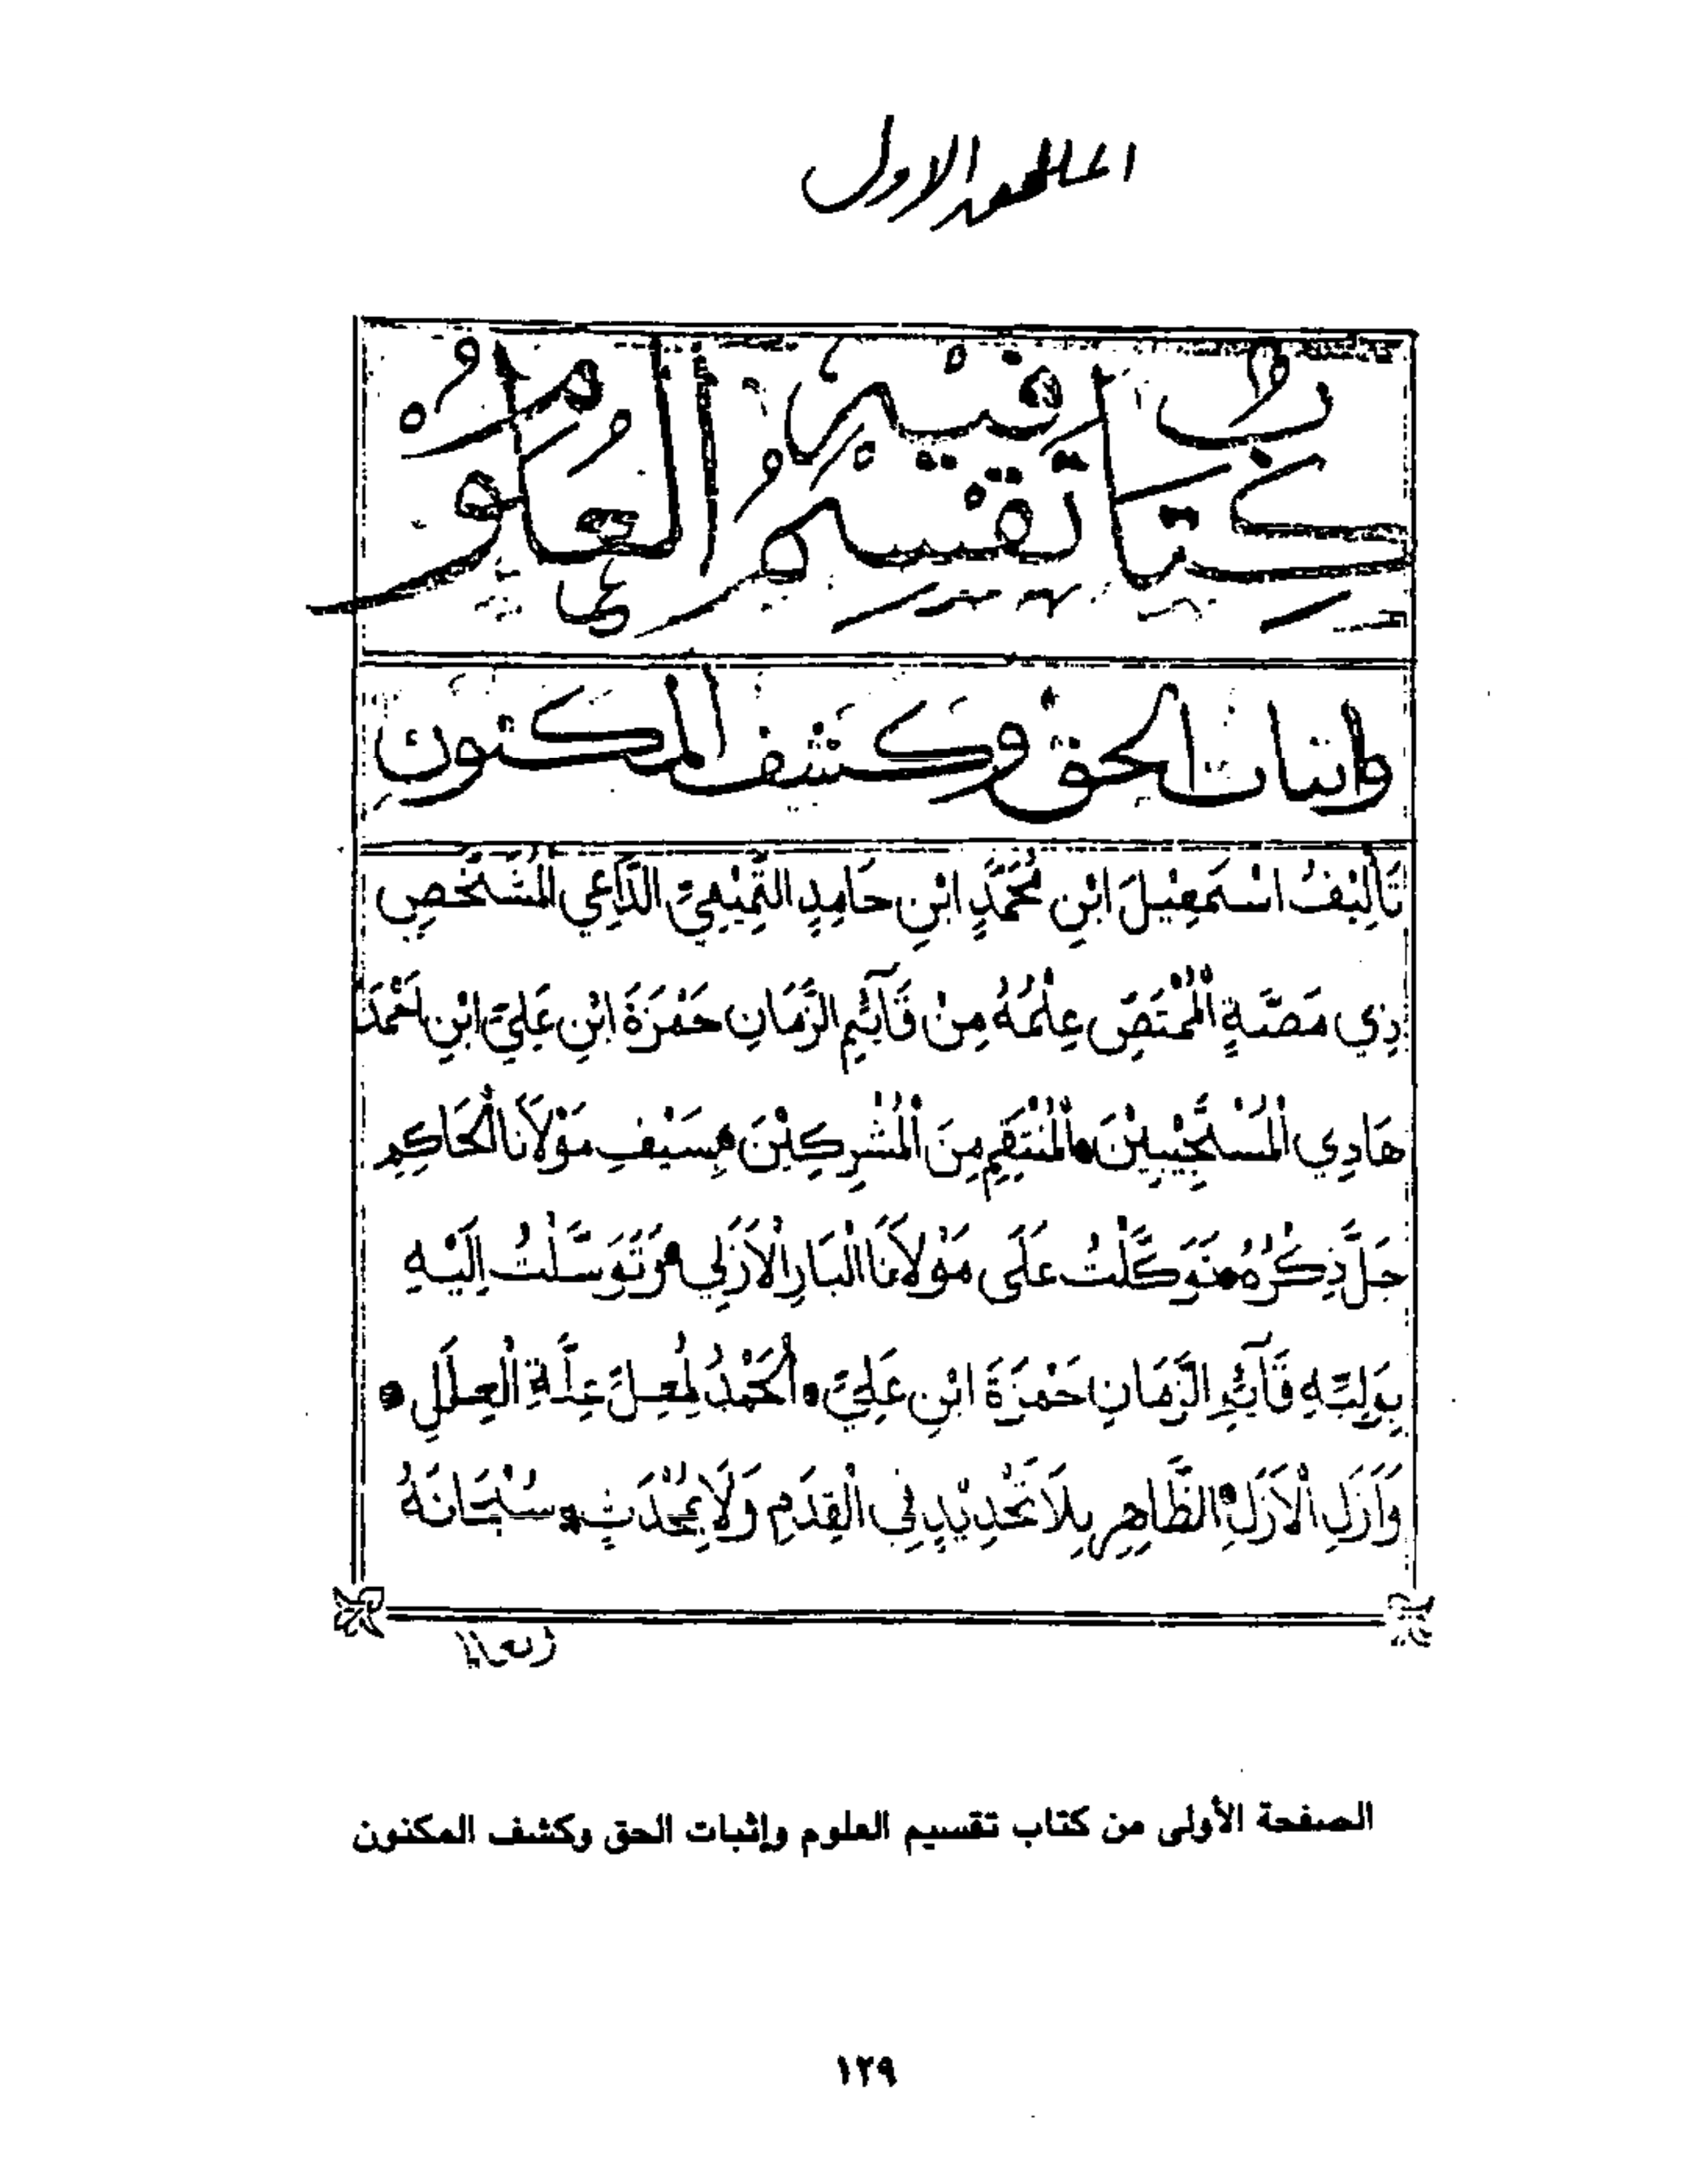 الملحق الاول
كِتَابٌ فِيْهِ
تَقْسِيْمُ الْعُلُوْمِ
واثبات الحق وكشف المكنون
تَأْلِيْفُ اسْمَعِيْلَ ابْنِ مُحَمَّدٍ ابْنِ حَامِدٍ التَّمِيْمِيِّ الدَّاعِي الْمُسْتَخَصِ
ذِي مَصَّةٍ الْمُمْتَصِّ عِلْمُهُ مِنْ قَآئِمِ الزَّمَانِ حَمْزَةَ ابْنِ عَلِيِّ ابْنِ احْمَدَ
هَادِي الْمُسْتَجِيْبِيْنَ الْمُنْتَقِمِ مِنَ الْمُشْرِكِيْنَ بِسَيْفِ مَوْلَانَا الْحَاكِمِ
جَلَّ ذِكْرُهُ تَوَكَّلْتُ عَلَى مَوْلَانَا الْبَارِ الْاَزَلِي وَتَوَسَّلْتُ اِلَيْهِ
بِوَلِيِّهِ قَآئِمِ الزَّمَانِ حَمْزَةَ ابْنِ عَلِيِّ الْحَمْدُ لِمُعِلِّ عِلَّةِ الْعِلَلِ
وَاَزَلِ الْاَزَلِ الظَّاهِرِ بِلَا تَحْدِيْدٍ فِي الْقِدَمِ وَلَا بِمُحْدَثٍ سُبْحَانَهُ
الصفحة الأولى من كتاب تقسيم العلوم وإثبات الحق وكشف المكنون
١٢٩